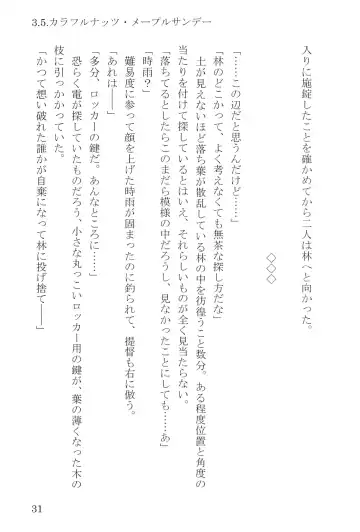 3.5.カラフルナッツ・メープルサンデー
入りに施錠したことを確かめてから二人は林へと向かった。
◇◇◇
「……この辺だと思うんだけど……」
「林のどこかって、よく考えなくても無茶な探し方だな」
土が見えないほど落ち葉が散乱している林の中を彷徨うこと数分。ある程度位置と角度の
当たりを付けて探しているとはいえ、それらしいものが全く見当たらない。
「落ちてるとしたらこのまだら模様の中だろうし、見なかったことにしても……あ」
「時雨？」
難易度に参って顔を上げた時雨が固まったのに釣られて、提督も右に倣う。
「あれは――」
「多分、ロッカーの鍵だ。あんなところに……」
恐らく電が探していたものだろう、小さな丸っこいロッカー用の鍵が、葉の薄くなった木の
枝に引っかかっていた。
「かつて想い破れた誰かが自棄になって林に投げ捨て――」
31